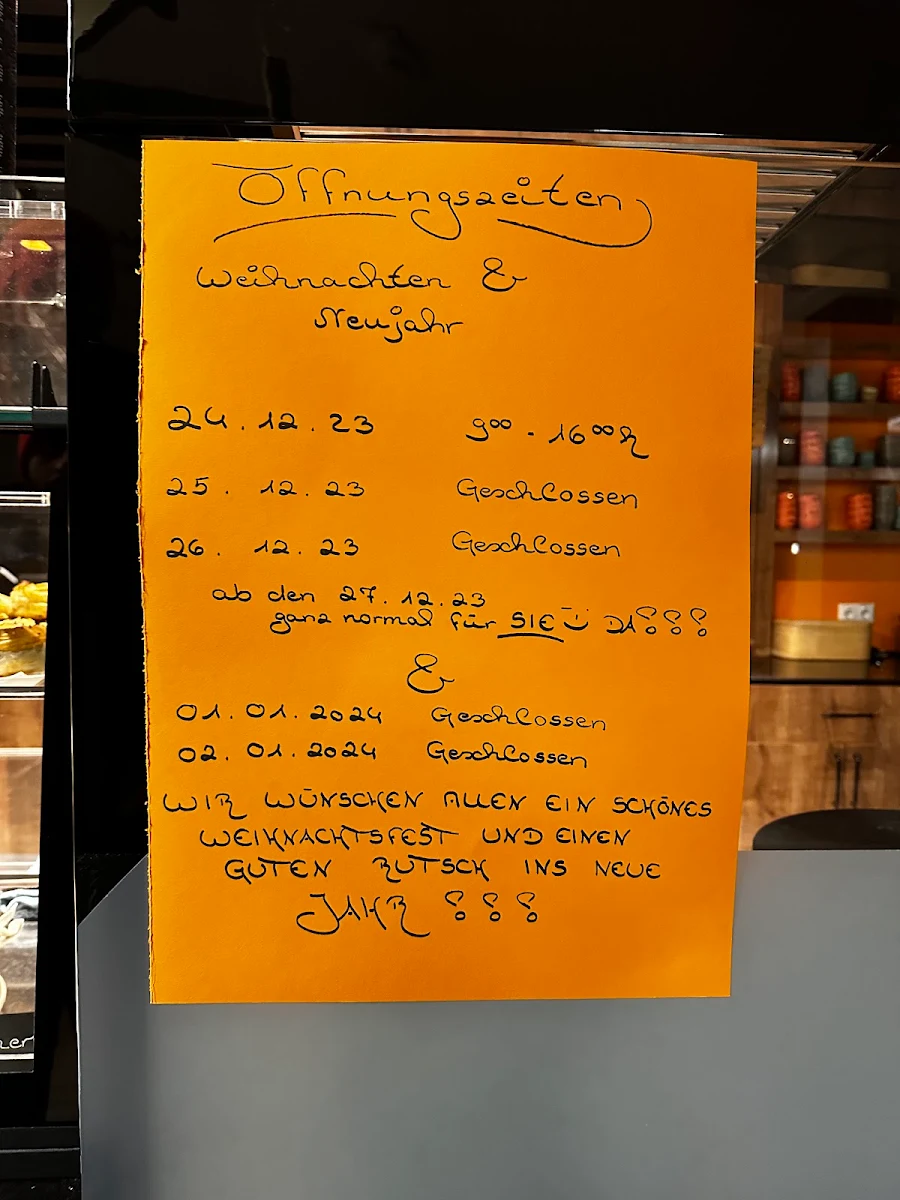 Öffnungszeiten
Weihnachten &
Neujahr
24.12.23 9⁰⁰ - 16⁰⁰h
25. 12. 23 Geschlossen
26. 12. 23 Geschlossen
ab den 27.12.23
ganz normal für SIE Ü DA!!!
&
01.01.2024 Geschlossen
02.01.2024 Geschlossen
WIR WÜNSCHEN ALLEN EIN SCHÖNES
WEIHNACHTSFEST UND EINEN
GUTEN RUTSCH INS NEUE
JAHR !!!